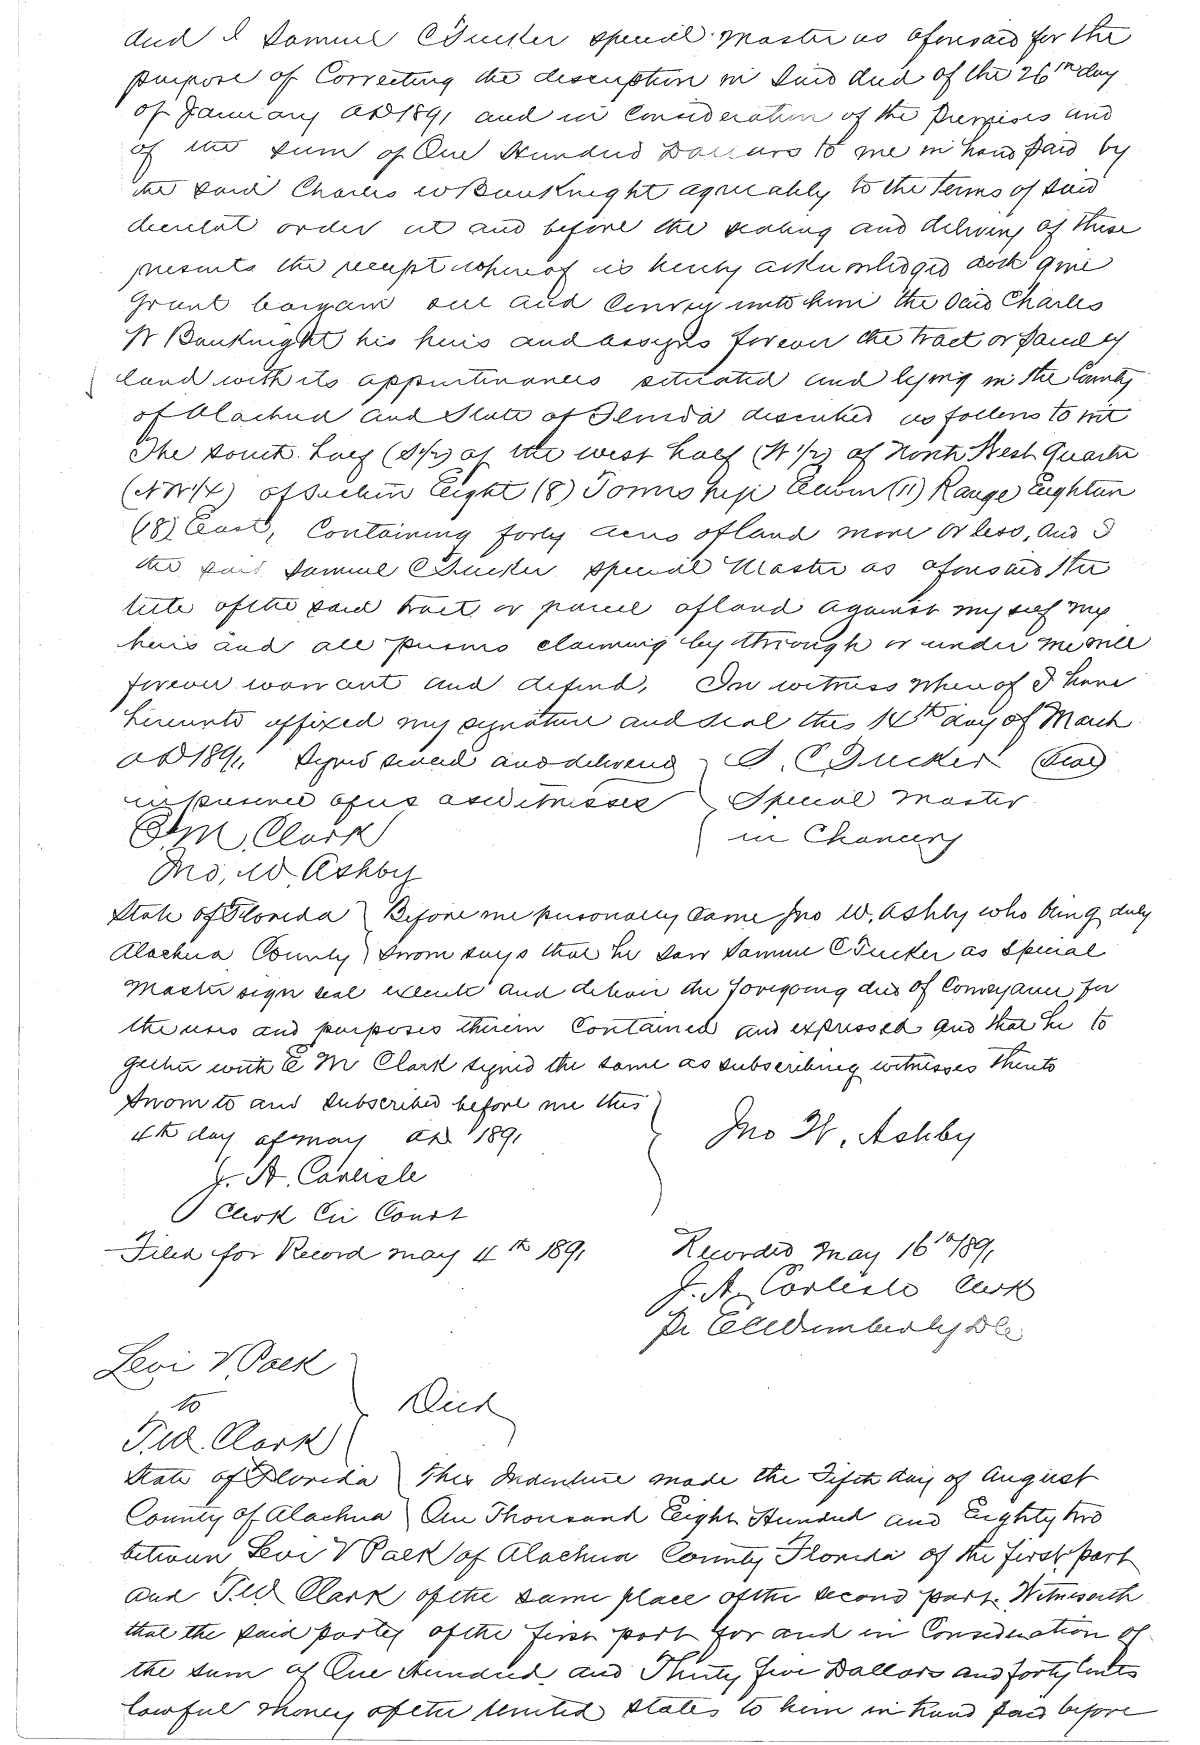 and I Samuel C Tucker special Master as aforesaid for the
purpose of Correcting the description in said deed of the 26th day
of January AD 1891 and in Consideration of the Premises and
of the sum of One Hundred Dollars to me in hand paid by
the said Charles W Bauknight agreeably to the terms of said
decretal order at and before the sealing and delivery of these
presents the receipt whereof is hereby acknowledged doth give
grant bargain sell and Convey unto him the said Charles
W Bauknight his heirs and assigns forever the tract or parcel of
land with its appurtenances situated and lying in the County
of Alachua and State of Florida described as follows to wit
The south half (S½) of the west half (W½) of North West Quarter
(NW¼) of Section Eight (8) Township Eleven (11) Range Eighteen
(18) East, Containing forty acres of land more or less, and I
the said Samuel C Tucker special Master as aforesaid the
title of the said tract or parcel of land against myself my
heirs and all persons claiming by through or under me will
forever warrant and defend, In witness whereof I have
hereunto affixed my signature and seal this 14th day of March
AD 1891. Signed sealed and delivered S. C Tucker (Seal)
in presence of us as witnesses Special Master
E. M. Clark in Chancery
Jno, W. Ashby
State of Florida Before me personally came Jno W. Ashby who being duly
Alachua County sworn says that he saw Samuel C Tucker as special
Master sign seal execute and deliver the foregoing deed of Conveyance for
the uses and purposes therein Contained and expressed and that he to
gether with E M Clark signed the same as subscribing witnesses thereto
Sworn to and subscribed before me this
4th day of may AD 1891 Jno W. Ashby
J. A. Carlisle
Clerk Cir Court
Filed for Record may 4th 1891 Recorded May 16th 1891
J. A. Carlisle Clerk
Pr Wimberly DC
Levi V Pack
to Deed
T.W. Clark
State of Florida This Indenture made the Fifth day of August
County of Alachua One Thousand Eight Hundred and Eighty two
between Levi V Pack of Alachua County Florida of the first part
and T.W. Clark of the same place of the second part. Witnesseth
that the said party of the first part for and in Consideration of
the sum of One Hundred and Thirty five Dollars and forty Cents
lawful money of the United States to him in hand paid before